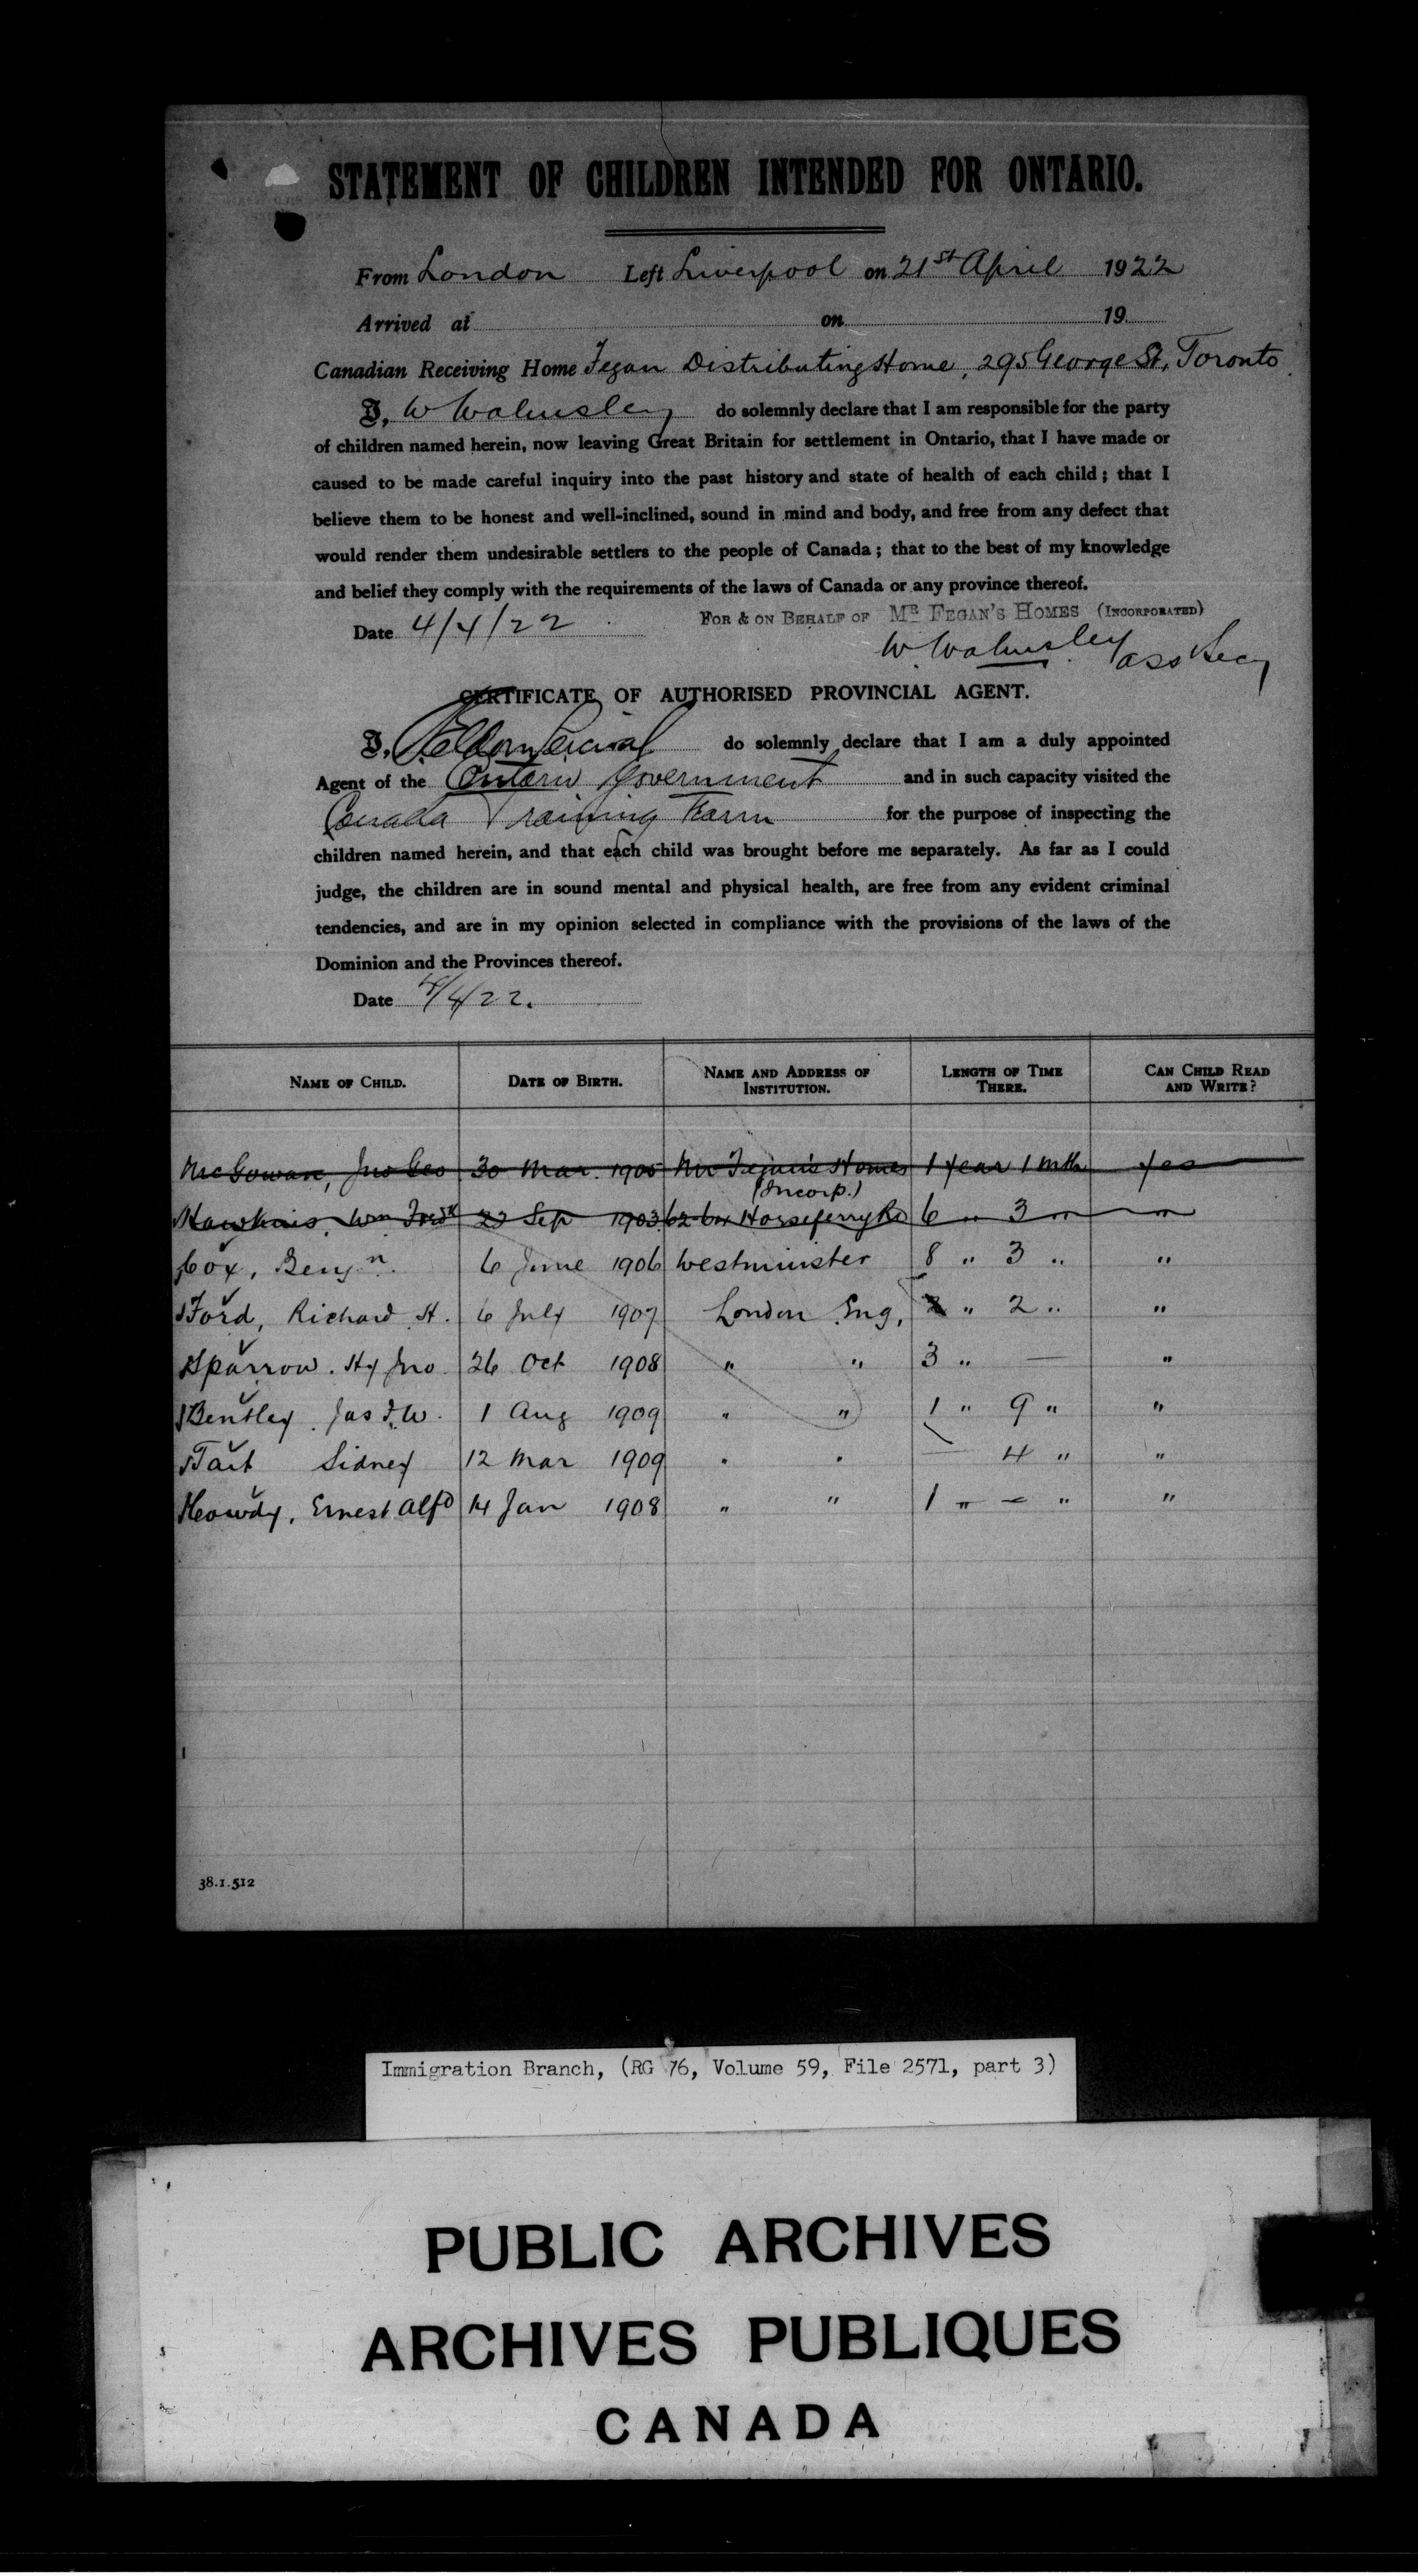 STATEMENT OF CHILDREN INTENDED FOR ONTARIO.
From London Left Liverpool on 21st April 1922
Arrived at on 19
Canadian Receiving Home Fegan Distributing Home, 295 George St, Toronto
I, W Walmsley do solemnly declare that I am responsible for the party
of children named herein, now leaving Great Britain for settlement in Ontario, that I have made or
caused to be made careful inquiry into the past history and state of health of each child; that I
believe them to be honest and well-inclined, sound in mind and body, and free from any defect that
would render them undesirable settlers to the people of Canada; that to the best of my knowledge
and belief they comply with the requirements of the laws of Canada or any province thereof.
Date 4/4/22 FOR & ON BEHALF OF MR FEGAN'S HOMES (INCORPORATED)
W. Walmsley ass Secy
CERTIFICATE OF AUTHORISED PROVINCIAL AGENT.
I, do solemnly declare that I am a duly appointed
Agent of the Ontario Government and in such capacity visited the
Canada Training Farm for the purpose of inspecting the
children named herein, and that each child was brought before me separately. As far as I could
judge, the children are in sound mental and physical health, are free from any evident criminal
tendencies, and are in my opinion selected in compliance with the provisions of the laws of the
Dominion and the Provinces thereof.
Date 4/4/22.
NAME OF CHILD. DATE OF BIRTH. NAME AND ADDRESS OF INSTITUTION. LENGTH OF TIME THERE. CAN CHILD READ AND WRITE?
McGowan, Jno Geo 30 Mar. 1905 Mr Fegan's Homes 1 year 1 mth yes
(Incorp.)
Hawkins, Wm Fredk 22 Sep 1903 62-64 Horseferry Rd 6 " 3 " "
Cox, Benjn. 6 June 1906 Westminster 8 " 3 " "
Ford, Richard H. 6 July 1907 London Eng, " 2 " "
Sparrow. Hy Jno. 26 Oct 1908 " " 3 " — "
Bentley Jas F. W. 1 Aug 1909 " " 1 " 9 " "
Tait Sidney 12 Mar 1909 " " — 4 " "
Heowdy, Ernest Alfd 14 Jan 1908 " " 1 " — " "
38.1.512
Immigration Branch, (RG 76, Volume 59, File 2571, part 3)
PUBLIC ARCHIVES
ARCHIVES PUBLIQUES
CANADA